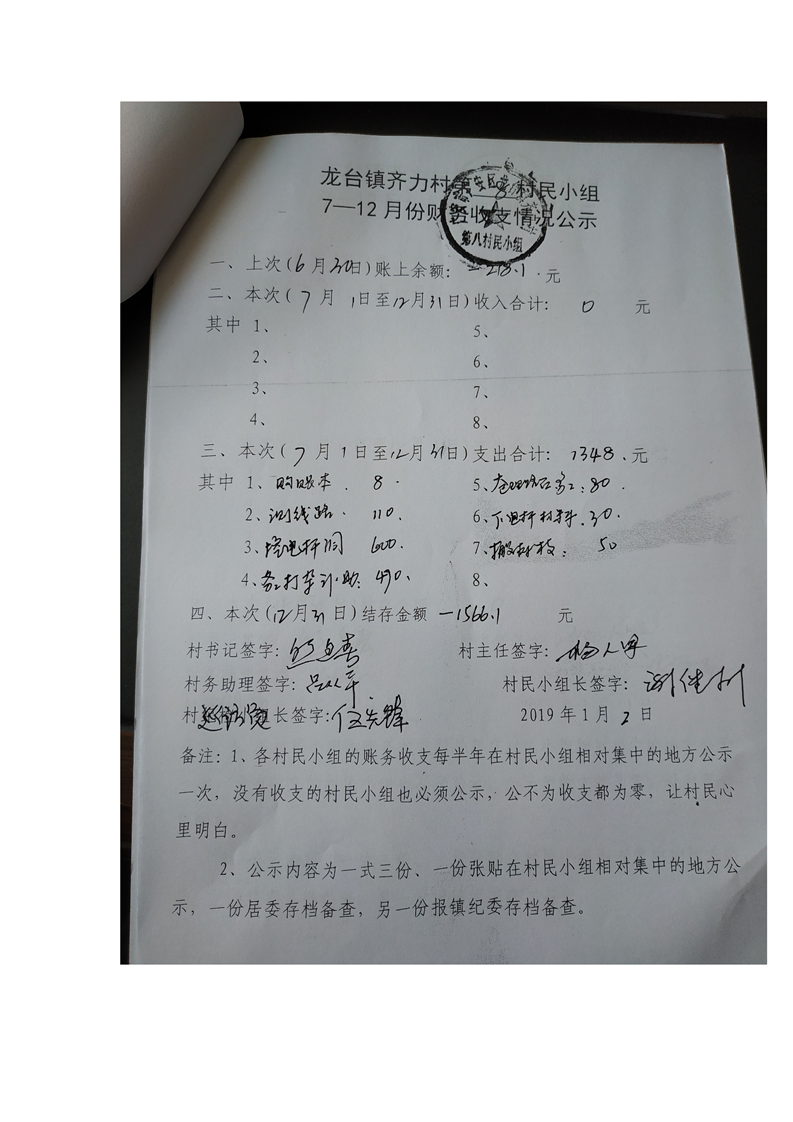 龙台镇齐力村第 8 村民小组
7—12月份财务收支情况公示
第八村民小组
一、上次(6月30日)账上余额: -218.1 元
二、本次(7月1日至12月31日)收入合计: 0 元
其中 1、 5、
2、 6、
3、 7、
4、 8、
三、本次(7月1日至12月31日)支出合计: 1348.元
其中 1、购账本 8 5、 80
2、测线路 110. 6、下电杆材料.30.
3、挖电杆洞 600. 7、搬树枝: 50
4、务工打杂补助: 470. 8、
四、本次(12月31日)结存金额 -1566.1 元
村书记签字: 村主任签字:
村务助理签字: 村民小组长签字:
村 长签字:伍先锋 2019年1月2日
备注:1、各村民小组的账务收支每半年在村民小组相对集中的地方公示
一次,没有收支的村民小组也必须公示,公不为收支都为零,让村民心
里明白。
2、公示内容为一式三份、一份张贴在村民小组相对集中的地方公
示,一份居委存档备查,另一份报镇纪委存档备查。